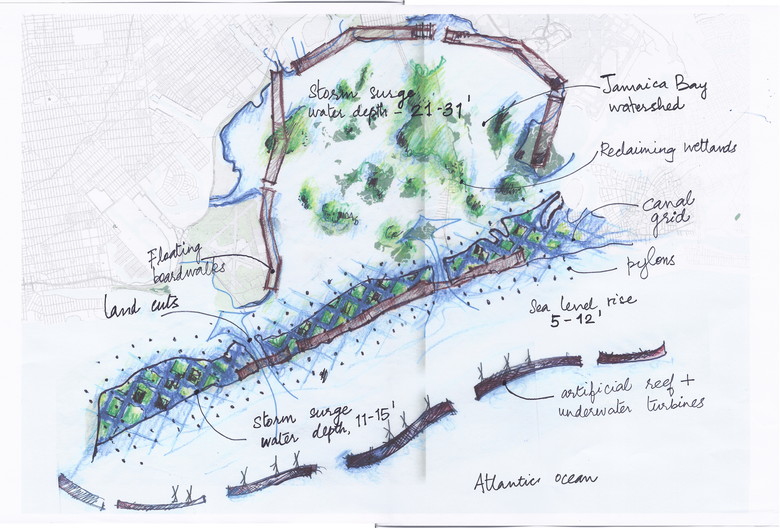 Storm surge
water depth - 21-31'
Jamaica Bay
watershed
Reclaiming wetlands
canal
grid
pylons
Floating
boardwalks
land cuts
Sea level rise
5-12'
artificial reef +
underwater turbines
Storm surge
water depth, 11-15'
Atlantic ocean